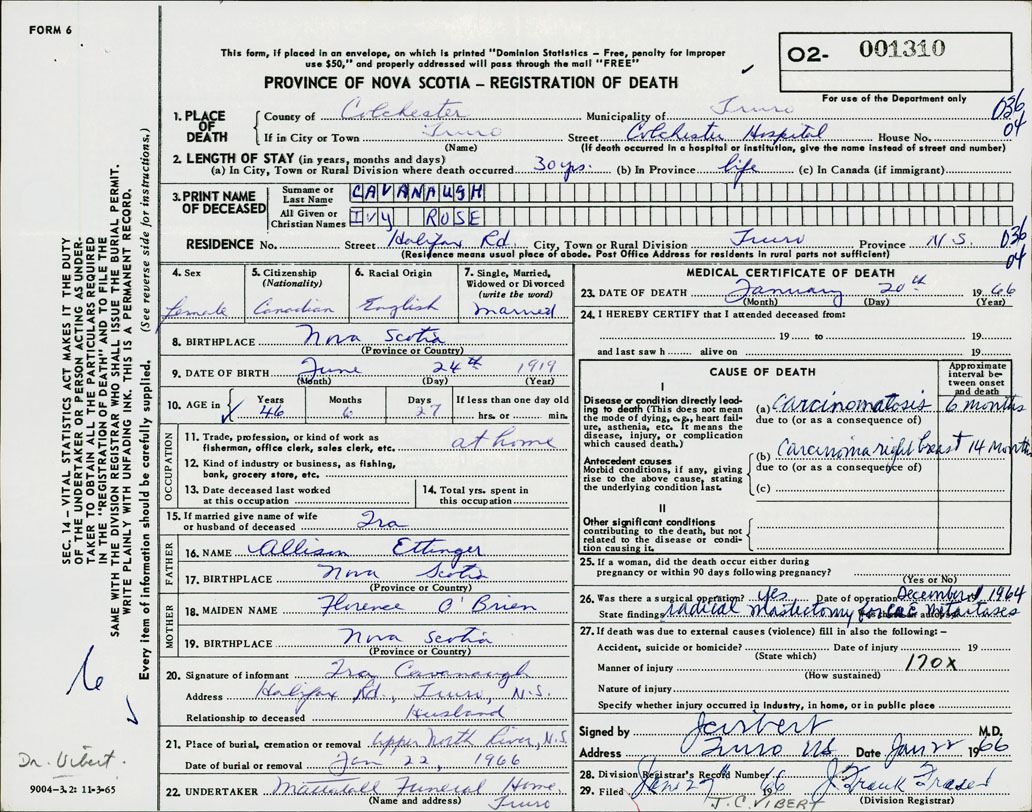 FORM 6
This form, if placed in an envelope, on which is printed "Dominion Statistics – Free, penalty for improper
use $50," and properly addressed will pass through the mail "FREE"
PROVINCE OF NOVA SCOTIA – REGISTRATION OF DEATH
02- 001310
For use of the Department only
SEC. 14 – VITAL STATISTICS ACT MAKES IT THE DUTY
OF THE UNDERTAKER OR PERSON ACTING AS UNDER-
TAKER TO OBTAIN ALL THE PARTICULARS REQUIRED
IN THE "REGISTRATION OF DEATH" AND TO FILE THE
SAME WITH THE DIVISION REGISTRAR WHO SHALL ISSUE THE BURIAL PERMIT.
WRITE PLAINLY WITH UNFADING INK. THIS IS A PERMANENT RECORD.
Every item of information should be carefully supplied. (See reverse side for instructions.)
1. PLACE OF DEATH
County of Colchester Municipality of Truro 036
If in City or Town Truro Street Colchester Hospital House No. 04
(Name) (If death occurred in a hospital or institution, give the name instead of street and number)
2. LENGTH OF STAY (in years, months and days)
(a) In City, Town or Rural Division where death occurred 30 yrs. (b) In Province life (c) In Canada (if immigrant)
3. PRINT NAME OF DECEASED
Surname or Last Name CAVANAUGH
All Given or Christian Names IVY ROSE
RESIDENCE No. Street Halifax Rd. City, Town or Rural Division Truro Province N.S. 036
(Residence means usual place of abode. Post Office Address for residents in rural parts not sufficient) 04
4. Sex Female
5. Citizenship (Nationality) Canadian
6. Racial Origin English
7. Single, Married, Widowed or Divorced (write the word) Married
8. BIRTHPLACE Nova Scotia
(Province or Country)
9. DATE OF BIRTH June 24th 1919
(Month) (Day) (Year)
10. AGE in Years 46 Months 6 Days 27 If less than one day old
hrs. or min.
OCCUPATION
11. Trade, profession, or kind of work as
fisherman, office clerk, sales clerk, etc. at home
12. Kind of industry or business, as fishing,
bank, grocery store, etc.
13. Date deceased last worked
at this occupation
14. Total yrs. spent in
this occupation
15. If married give name of wife
or husband of deceased Ira
FATHER
16. NAME Allison Ettinger
17. BIRTHPLACE Nova Scotia
(Province or Country)
MOTHER
18. MAIDEN NAME Florence O'Brien
19. BIRTHPLACE Nova Scotia
(Province or Country)
20. Signature of informant Ira Cavanaugh
Address Halifax Rd., Truro, N.S.
Relationship to deceased Husband
21. Place of burial, cremation or removal Upper North River, N.S.
Date of burial or removal Jan 22, 1966
22. UNDERTAKER Mattatall Funeral Home
(Name and address) Truro
MEDICAL CERTIFICATE OF DEATH
23. DATE OF DEATH January 20th 1966
(Month) (Day) (Year)
24. I HEREBY CERTIFY that I attended deceased from:
19 to 19
and last saw h alive on 19
CAUSE OF DEATH
Approximate interval between onset and death
I
Disease or condition directly lead-
ing to death (This does not mean
the mode of dying, e.g., heart fail-
ure, asthenia, etc. It means the
disease, injury, or complication
which caused death.)
(a) Carcinomatosis 6 months
due to (or as a consequence of)
Antecedent causes
Morbid conditions, if any, giving
rise to the above cause, stating
the underlying condition last.
(b) Carcinoma right breast 14 months
due to (or as a consequence of)
(c)
II
Other significant conditions
contributing to the death, but not
related to the disease or condi-
tion causing it.
25. If a woman, did the death occur either during
pregnancy or within 90 days following pregnancy?
(Yes or No)
26. Was there a surgical operation? yes Date of operation December 1964
State findings radical Mastectomy for Metastases
27. If death was due to external causes (violence) fill in also the following:–
Accident, suicide or homicide? Date of injury 19
(State which)
Manner of injury 170X
(How sustained)
Nature of injury
Specify whether injury occurred in industry, in home, or in public place
Signed by M.D.
Address Truro NS Date Jan 22 1966
28. Division Registrar's Record Number 6
29. Filed Jan 27 J. Frank Fraser
(Division Registrar)
J.C. VIBERT
Dr. Vibert.
9004-3.2: 11-3-65